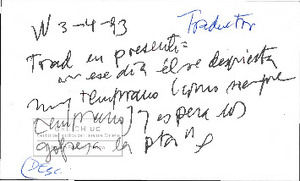 W 3-4-93
Traductor
Trad en presente =
ese día él se despierta
muy temprano (como siempre
temprano) y espera
golpeza la pta
DESC.